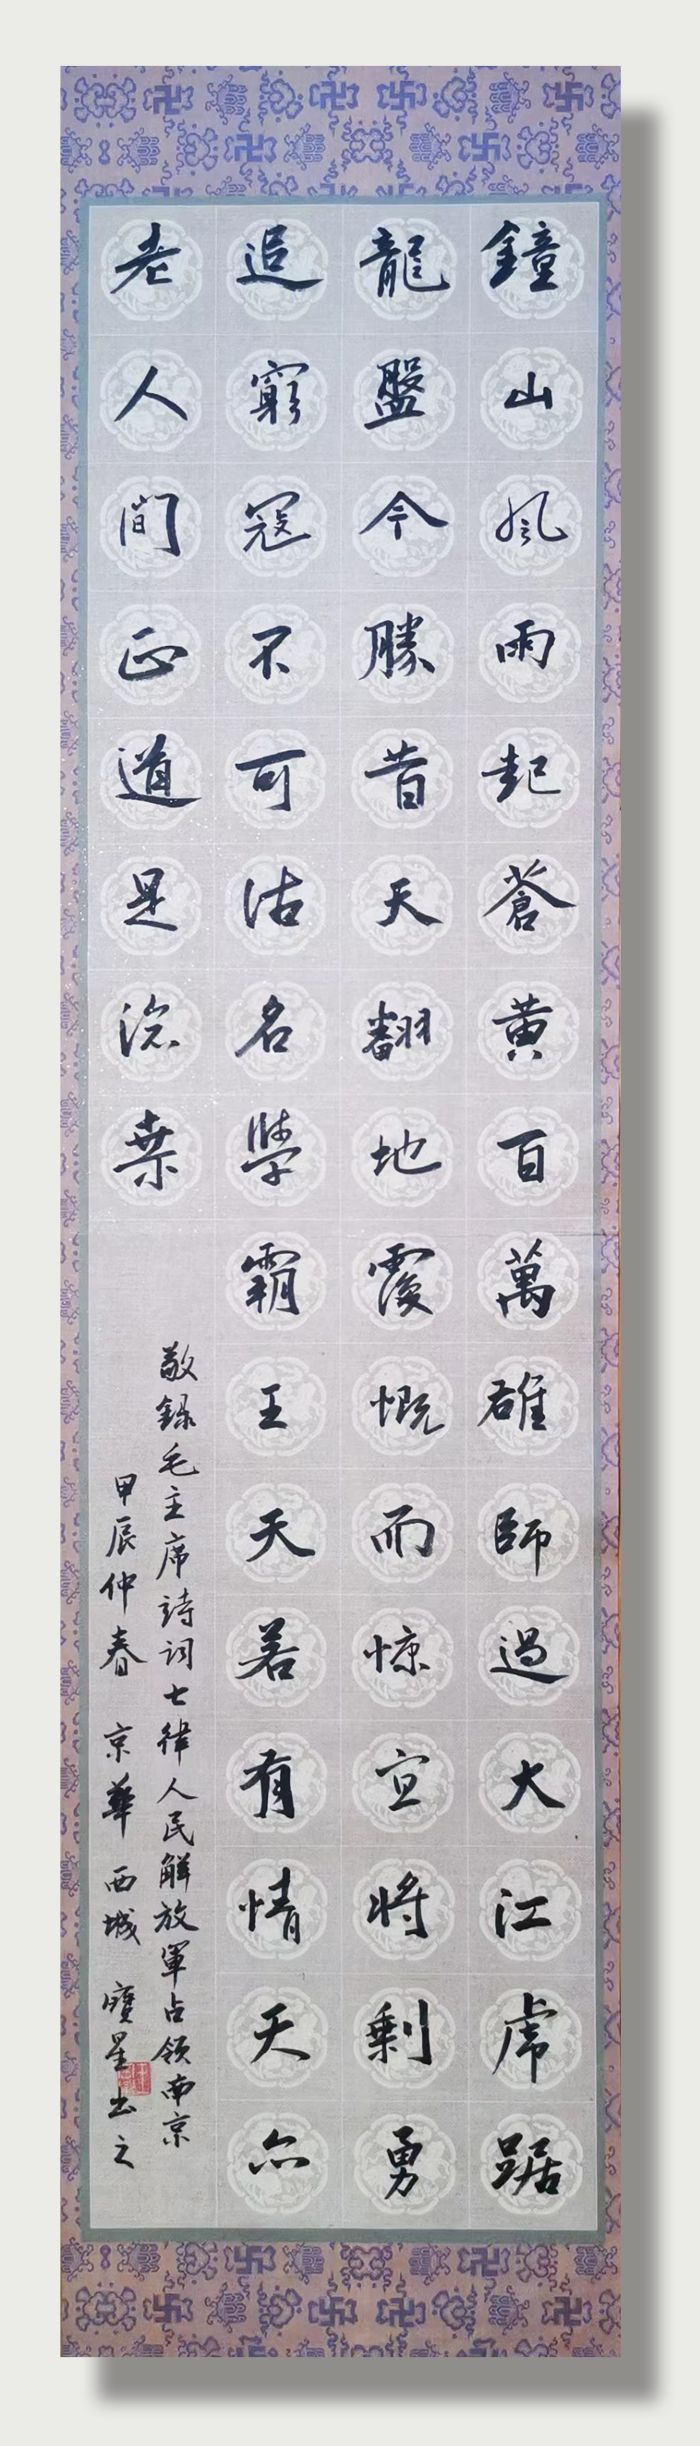 鐘山風雨起蒼黃百萬雄師過大江虎踞
龍盤今勝昔天翻地覆慨而慷宜將剩勇
追窮寇不可沽名學霸王天若有情天亦
老人間正道是滄桑
敬錄毛主席詩词七律人民解放軍占领南京
甲辰仲春 京華西城 寶星书之